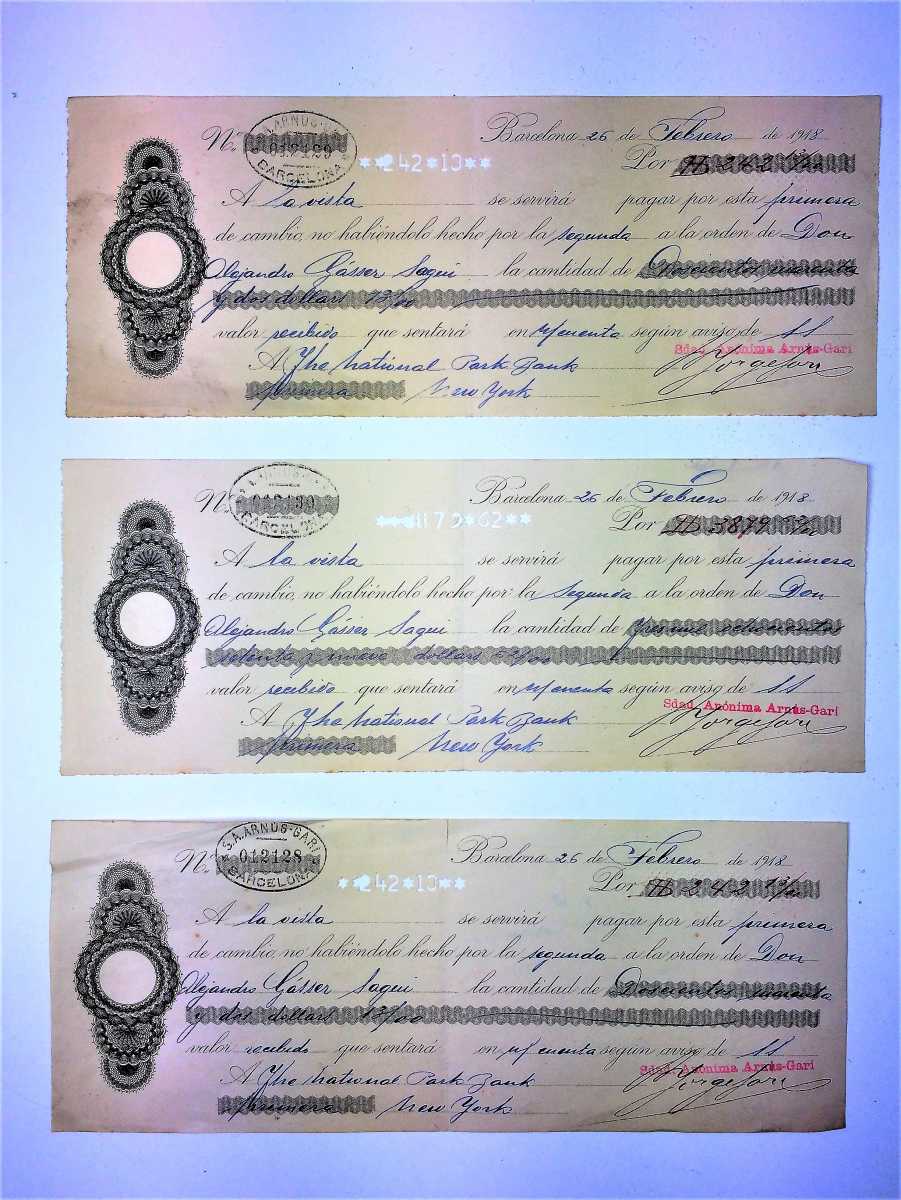 Nº 012129
S.A. ARNÚS-GARI BARCELONA
Barcelona 26 de Febrero de 1918
**242*13**
Por $ 242 13/00
A la vista se servirá pagar por esta primera
de cambio, no habiéndolo hecho por la segunda a la orden de Don
Alejandro Gásser Sagui la cantidad de Doscientos cuarenta
y dos dollars 13/00
valor recibido que sentará en m/ cuenta según aviso de SS
Sdad. Anónima Arnús-Garí
A The National Park Bank
Jorge Garí
primera New York
Nº 012130
BARCELONA
Barcelona 26 de Febrero de 1918
Por $ 3879
A la vista se servirá pagar por esta primera
de cambio, no habiéndolo hecho por la segunda a la orden de Don
Alejandro Gásser Sagui la cantidad de tres mil ochocientos
setenta y nueve dollars
valor recibido que sentará en m/ cuenta según aviso de SS
Sdad. Anónima Arnús-Garí
A The National Park Bank
Jorge Garí
primera New York
Nº 012128
S.A. ARNÚS-GARI BARCELONA
Barcelona 26 de Febrero de 1918
**242*13**
Por $ 242 13/00
A la vista se servirá pagar por esta primera
de cambio, no habiéndolo hecho por la segunda a la orden de Don
Alejandro Gásser Sagui la cantidad de Doscientos cuarenta
y dos dollars 13/00
valor recibido que sentará en m/ cuenta según aviso de SS
Sdad. Anónima Arnús-Garí
A The National Park Bank
Jorge Garí
primera New York